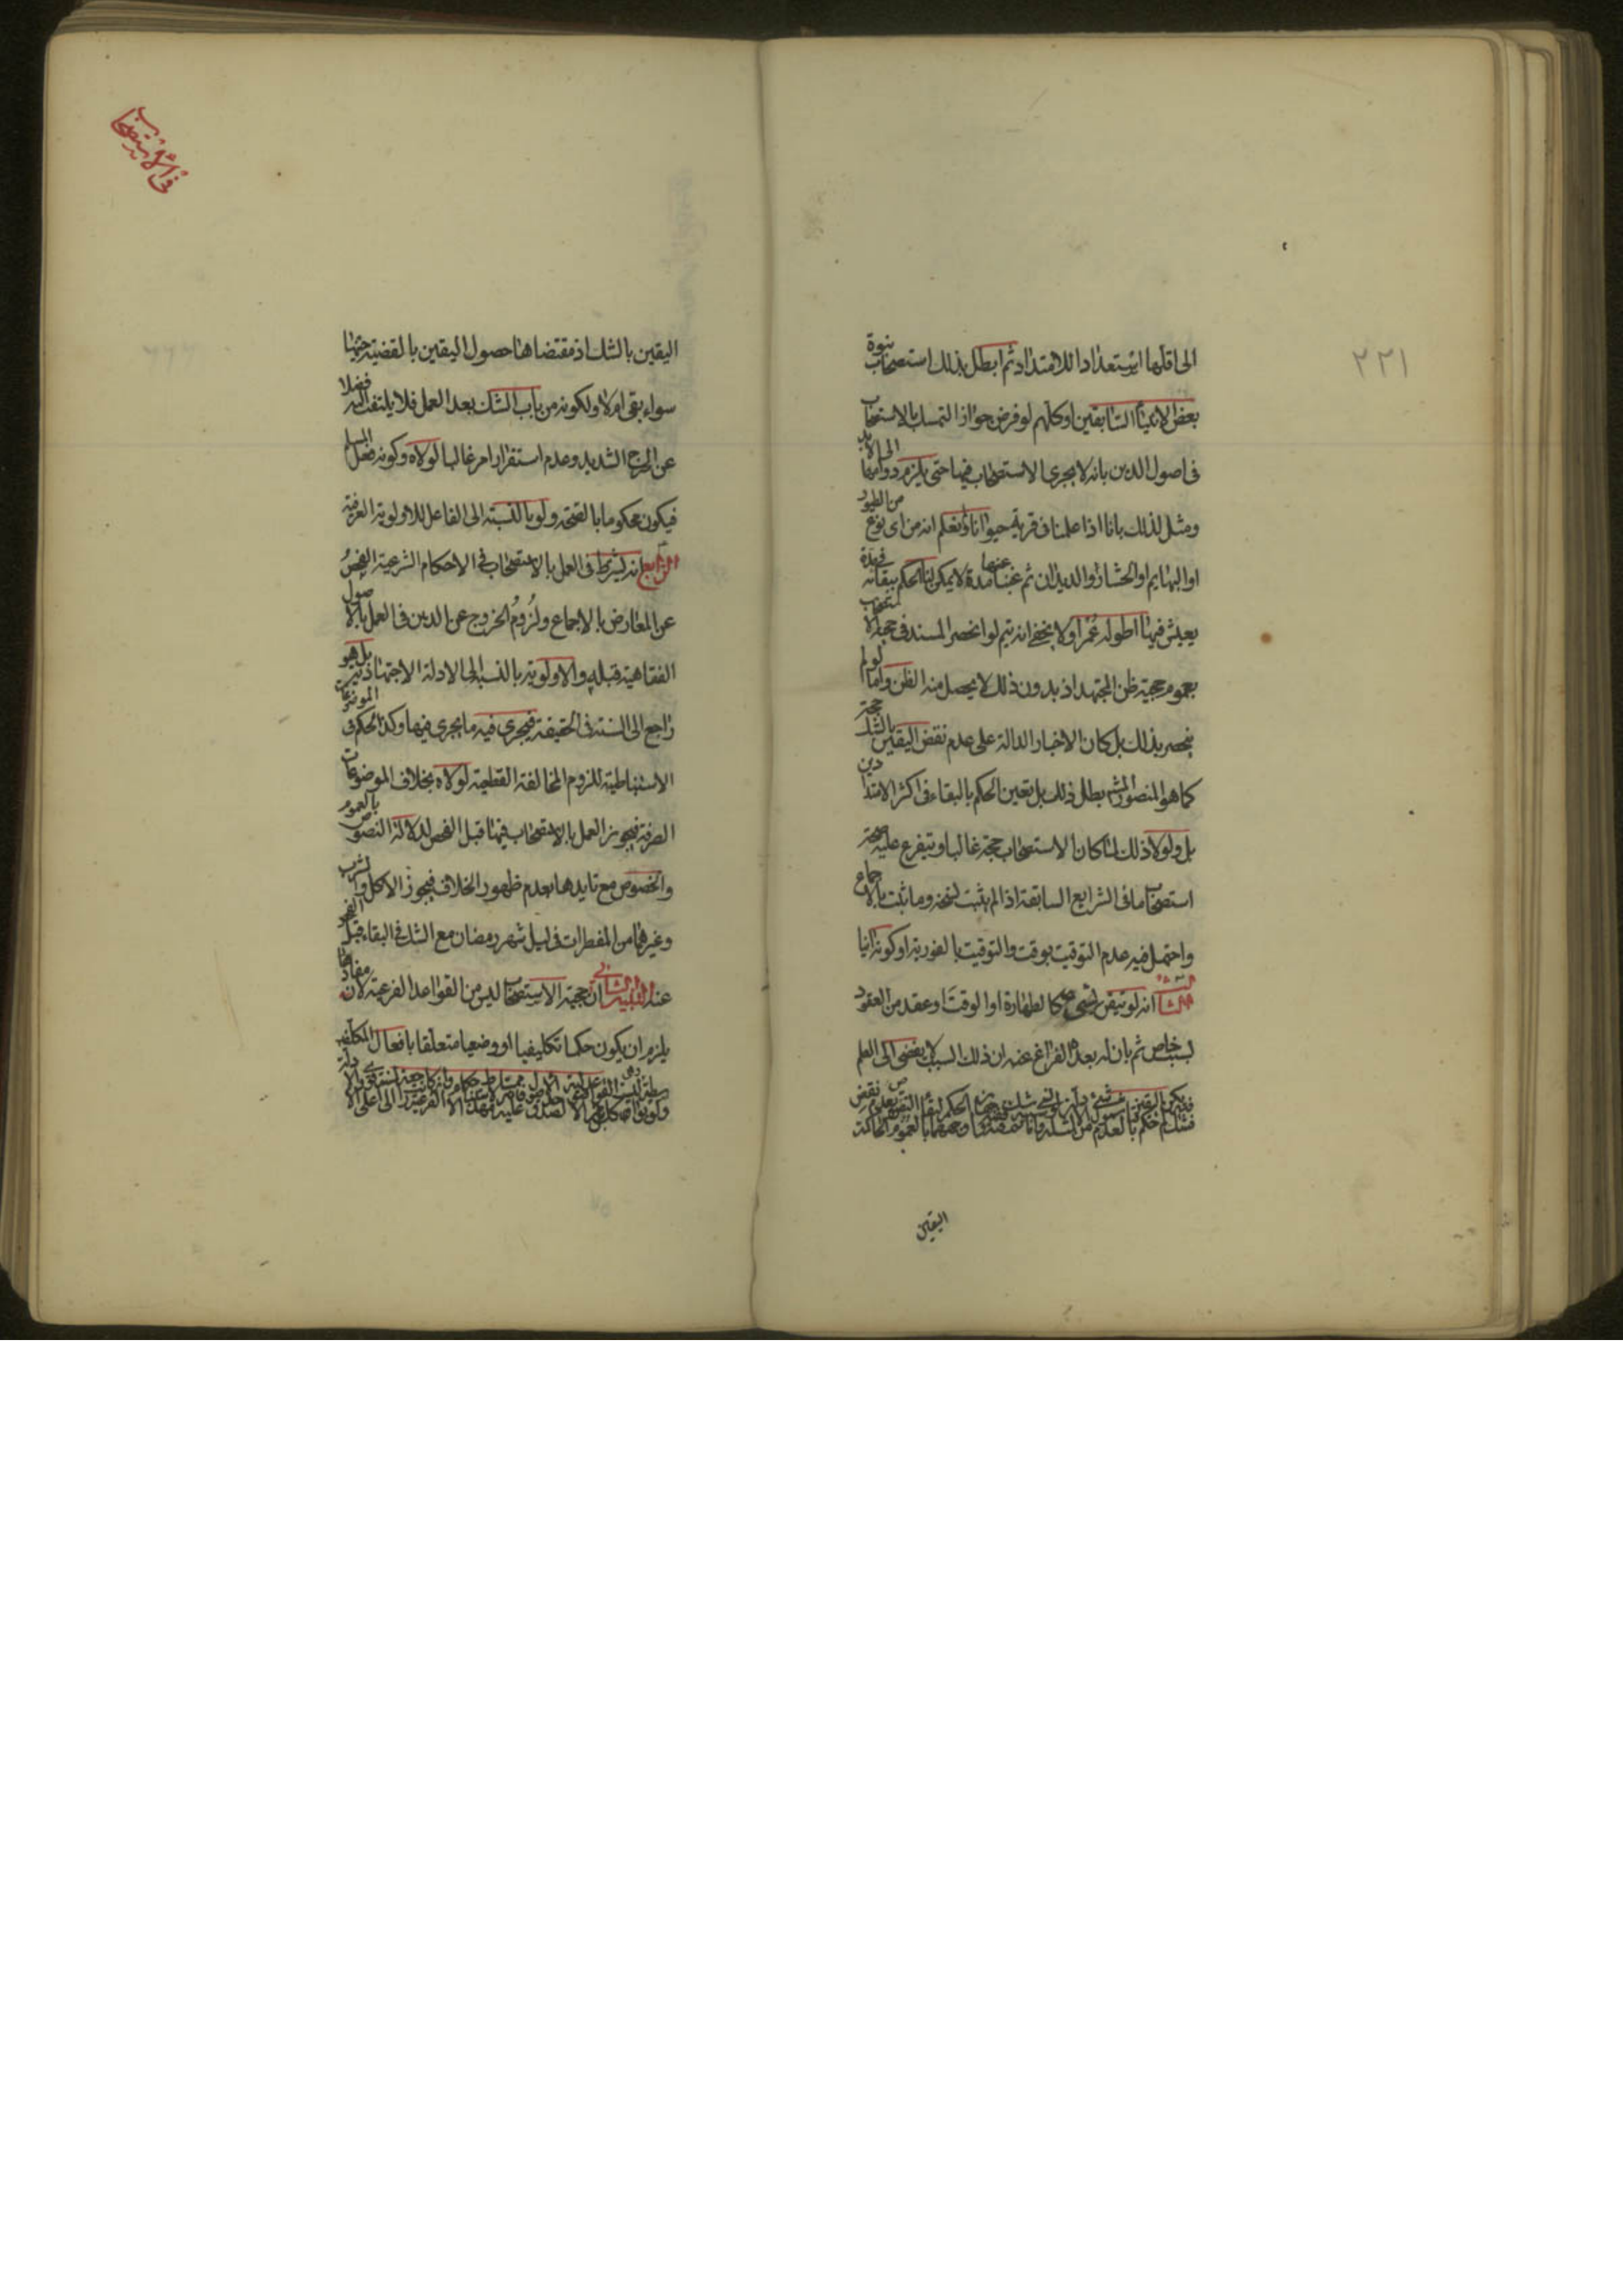 ٢٢١
الى اقلها استعدادا للامتداد ثم ابطل بذلك استصحاب نبوة
بعض الانبياء السابقين او كلهم لو فرض جواز التمسك بالاستصحاب
فى اصول الدين بانه لا يجرى الاستصحاب فيها حتى يلزم دوامها الى الابد
ومثل لذلك بانا اذا علمنا فى قرية حيوانا ولم نعلم انه من اى نوع من الطيور
او البهايم او الحشار والديدان ثم غبنا عنها مدة لا يمكن لنا الحكم ببقائه فى مدة
يعيش فيها اطولها عمرا ولا يخفى انه يتم لو انحصر المستند فى حجية الاستصحاب
بعموم حجية ظن المجتهد اذ بدون ذلك لا يحصل منه الظن واما لو لم
ينحصر بذلك بل كان الاخبار الدالة على عدم نقض اليقين بالشك حجة
كما هو المنصور المشهور بطل ذلك بل تعين الحكم بالبقاء فى اكثر الامتدادين
بل ولولا ذلك لما كان الاستصحاب حجة غالبا ويتفرع عليه صحة
استصحاب ما فى الشرايع السابقة اذا لم يثبت نسخه وما ثبت بالاجماع
واحتمل فيه عدم التوقيت بوقت والتوقيت بالفورية او كونه انيا
الثالث انه لو تيقن بشىء كالطهارة او الوقت او عقد من العقود
لسبب خاص ثم بان له بعد الفراغ عنه ان ذلك السبب لا يفضى الى العلم
اليقين
فى الاستصحاب
اليقين بالشك اذ مقتضاها حصول اليقين بالقضية حينها
سواء بقى ام لا ولكونه من باب الشك بعد العمل فلا يلتفت اليه فضلا
عن الحرج الشديد وعدم استقرار امر غالبا لولاه وكونه فعل المسلم
فيكون محكوما بالصحة ولو بالنسبة الى الفاعل للاولوية العرفية
الرابع انه يشترط فى العمل بالاستصحاب فى الاحكام الشرعية الفحص
عن المعارض بالاجماع ولزوم الخروج عن الدين فى العمل بالاصول
الفقاهية قبله والاولوية بالنسبة الى الادلة الاجتهادية بل هو
راجع الى السنة فى الحقيقة فيجرى فيه ما يجرى فيها وكذا الحكم فى الموضوعات
الاستنباطية للزوم المخالفة القطعية لولاه بخلاف الموضوعات
الصرفة فيجوز العمل بالاستصحاب فيها قبل الفحص لدلالة النصوص بالعموم
والخصوص مع تايدها بعدم ظهور الخلاف فيجوز الاكل والشرب
وغيرهما من المفطرات فى ليل شهر رمضان مع الشك فى البقاء قبل الفجر
عنه التنبيه الثانى ان حجية الاستصحاب ليس من القواعد الفرعية لان مفادها
يلزم ان يكون حكما تكليفيا او وضعيا متعلقا بافعال المكلف